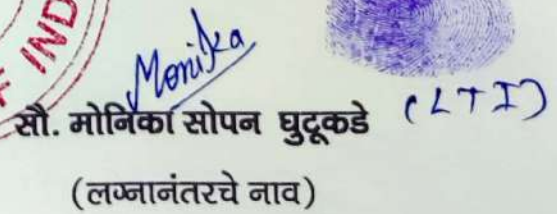 IND
Monika
सौ. मोनिका सोपन घुटूकडे (LTI)
(लग्नानंतरचे नाव)